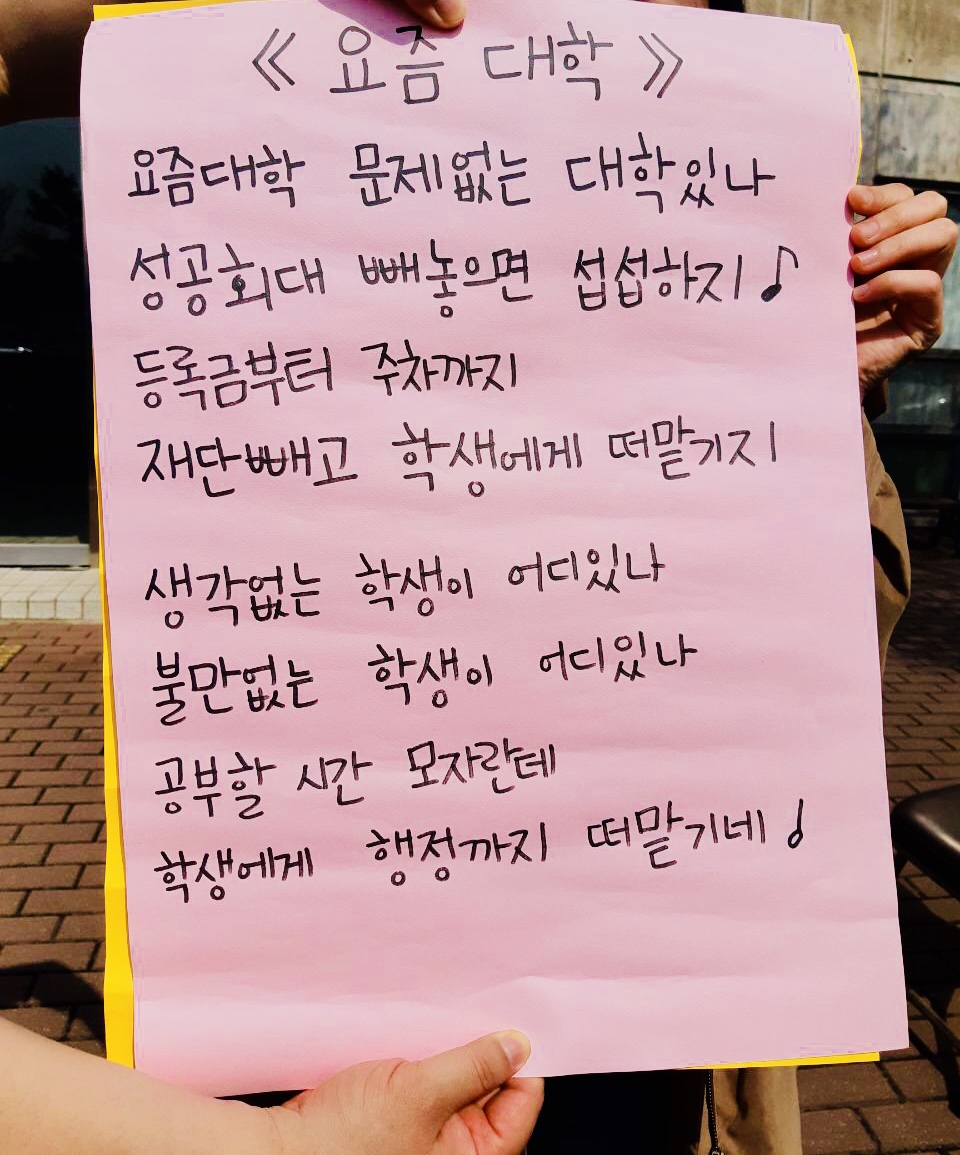 《 요즘 대학 》
요즘대학 문제없는 대학있나
성공회대 빼놓으면 섭섭하지♪
등록금부터 주차까지
재단빼고 학생에게 떠맡기지
생각없는 학생이 어디있나
불만없는 학생이 어디있나
공부할 시간 모자란데
학생에게 행정까지 떠맡기네♩